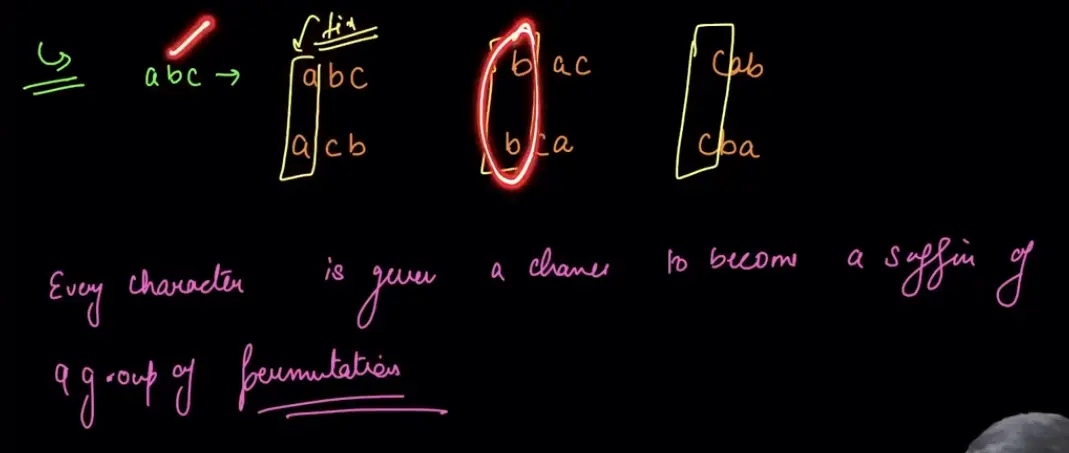 fix
abc → abc bac cab
acb bca cba
Every character is given a chance to become a suffix of
a group of permutations